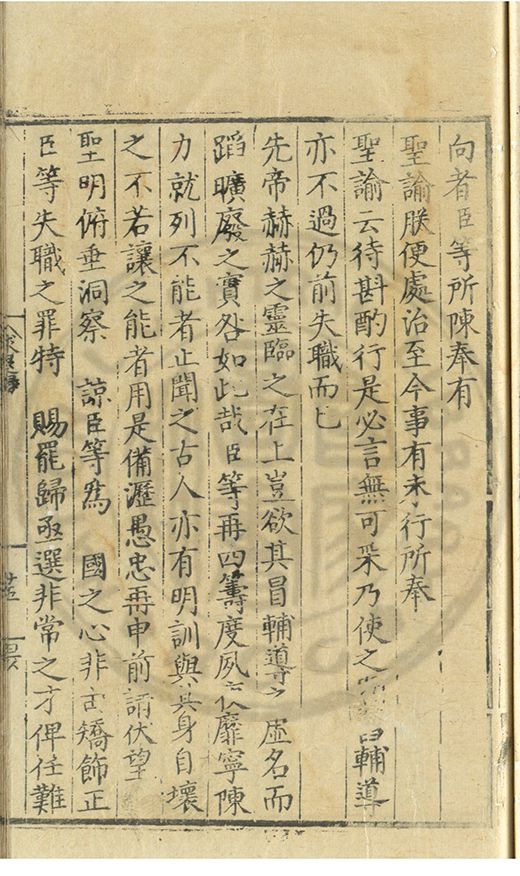 向者臣等所陳奉有
聖諭朕便處治至今事有未行所奉
聖諭云待斟酌行是必言無可采乃使之臣輔導
亦不過仍前失職而已
先帝赫赫之靈臨之在上豈欲其冒輔導之虛名而
蹈曠廢之實咎如此哉臣等再四籌度夙夜靡寧陳
力就列不能者止聞之古人亦有明訓與其身自壞
之不若讓之能者用是備瀝愚忠再申前請伏望
聖明俯垂洞察 諒臣等爲 國之心非由矯飾正
臣等失職之罪特 賜罷歸亟選非常之才俾任難
廿五